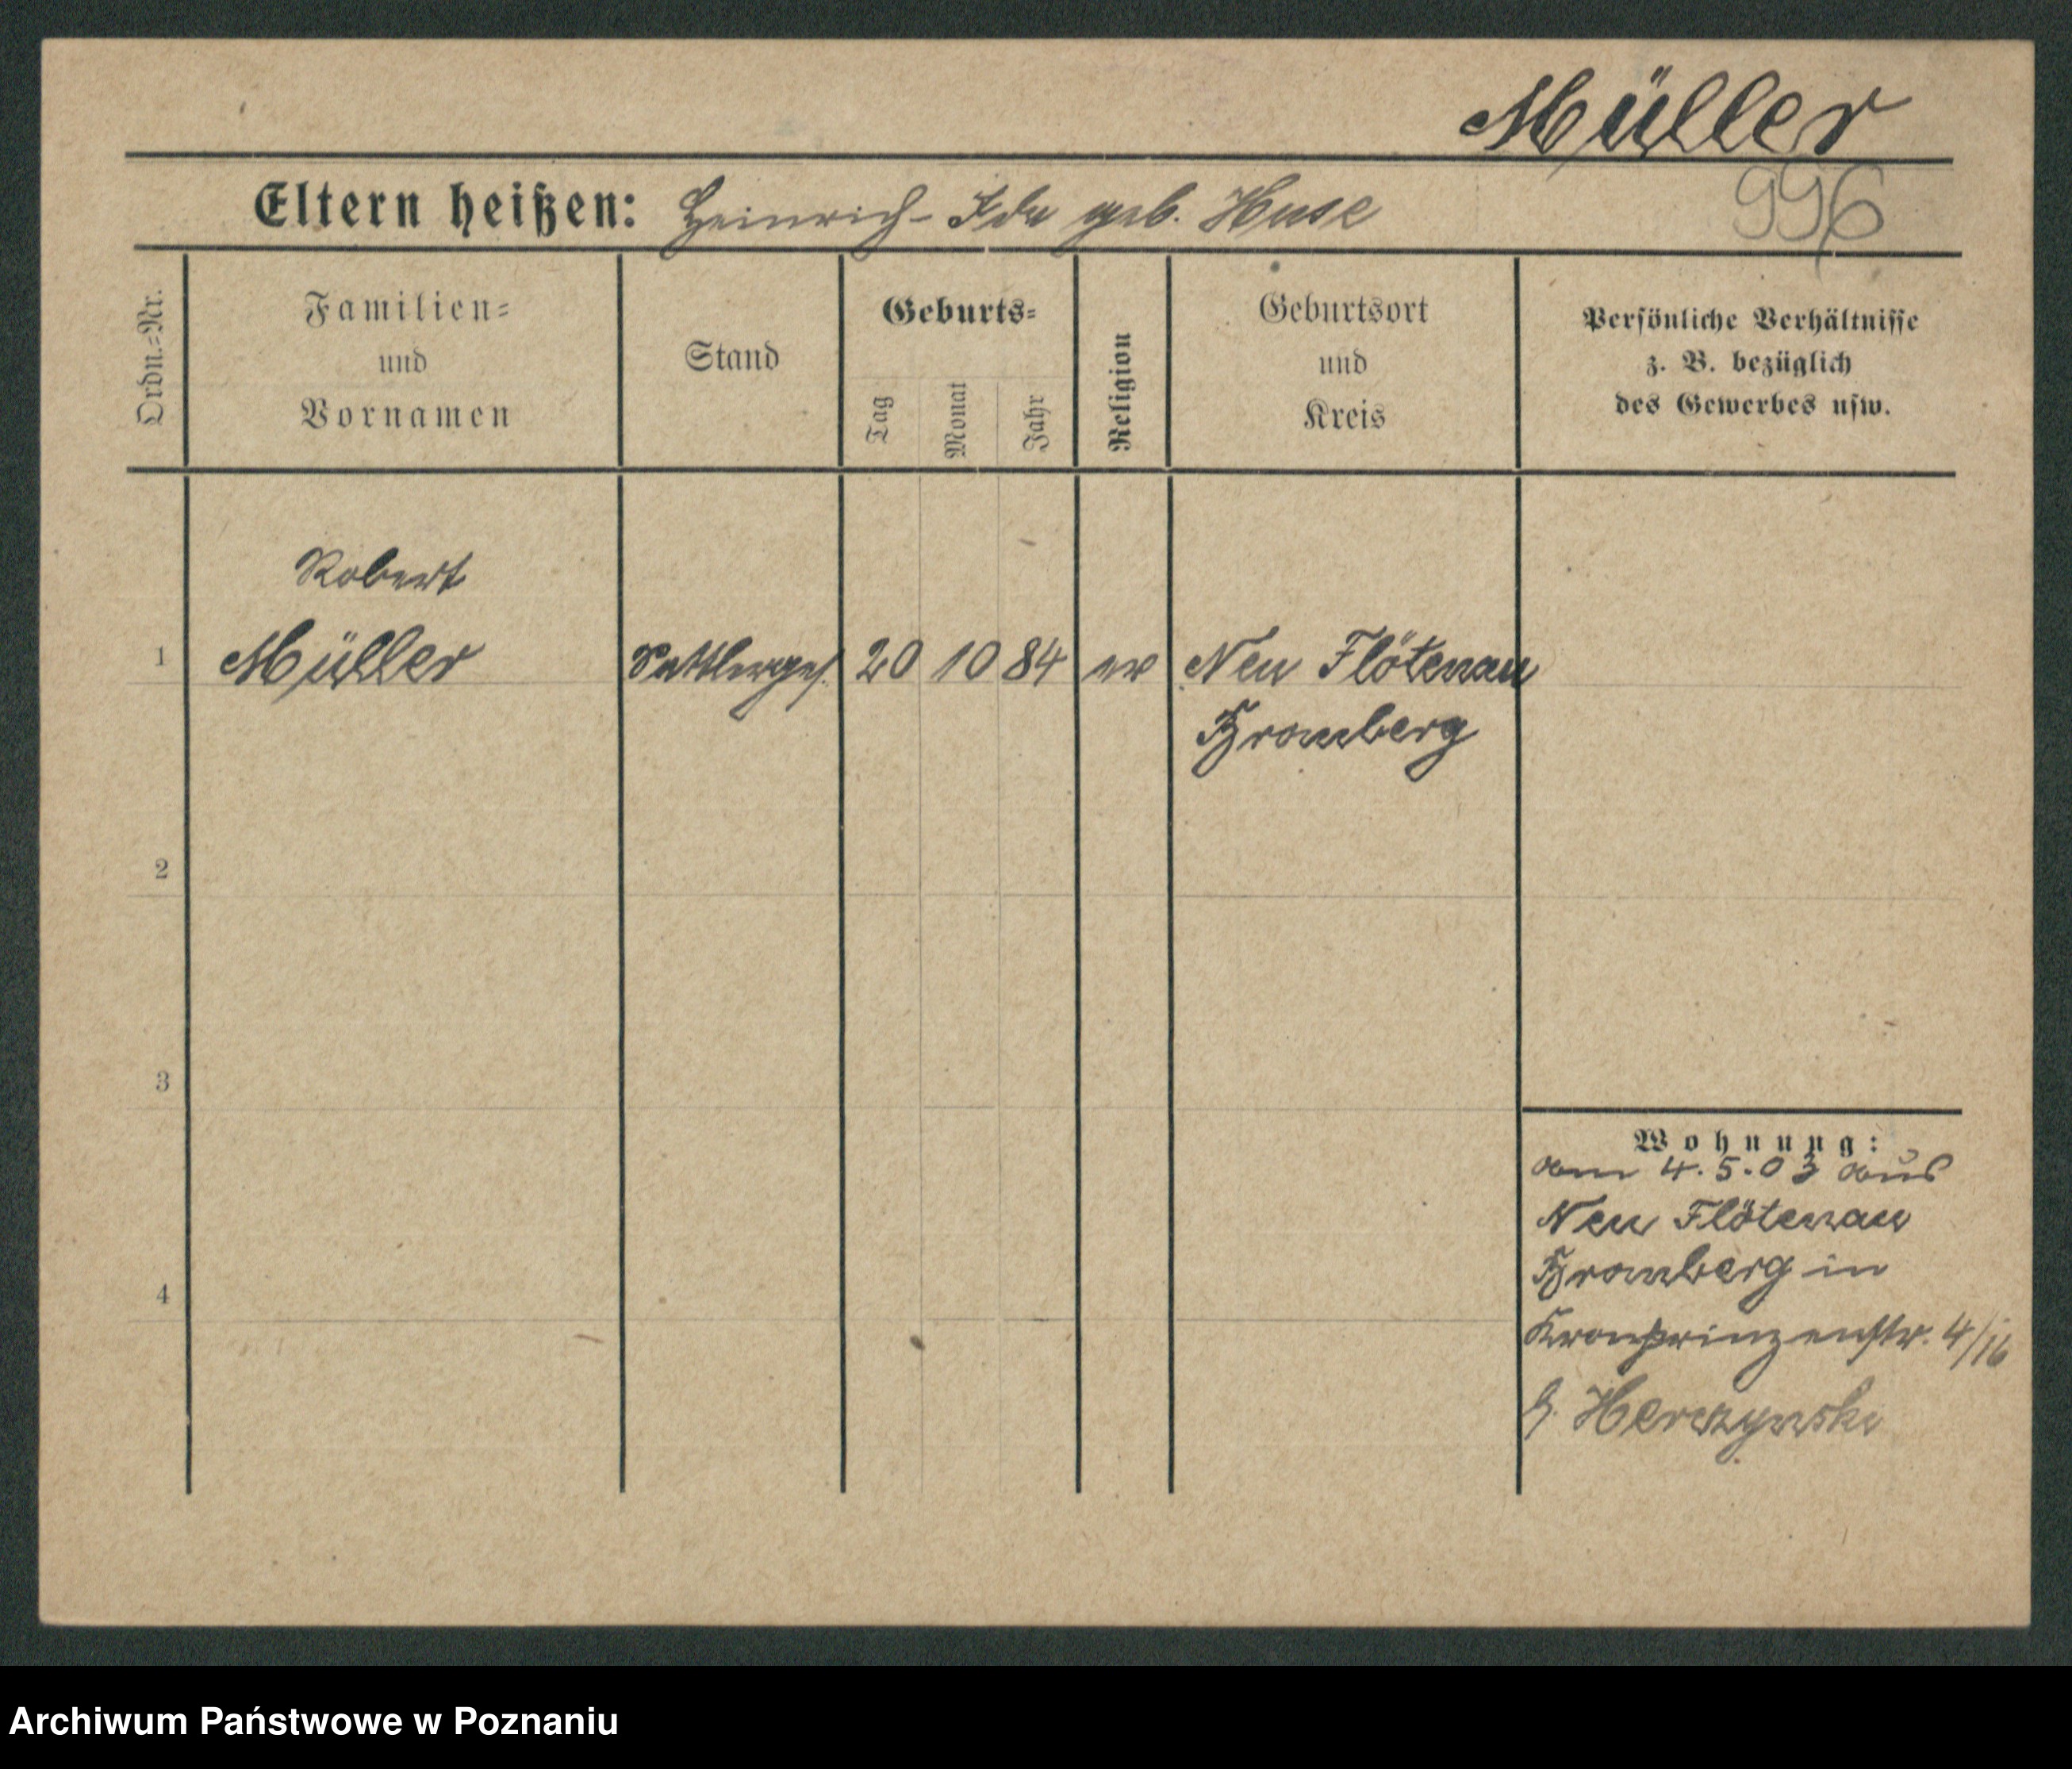 Müller
996
Eltern heißen: Heinrich - Ida geb. Huse
Ordn.=Nr.
Familien=
und
Vornamen
Stand
Geburts=
Tag
Monat
Jahr
Religion
Geburtsort
und
Kreis
Persönliche Verhältnisse
z. B. bezüglich
des Gewerbes usw.
Robert
1 Müller Sattlerges. 20 10 84 ev Neu Flötenau
Bromberg
2
3
4
Wohnung:
am 4.5.03 aus
Neu Flötenau
Bromberg in
Kronprinzenstr. 4/16
Archiwum Państwowe w Poznaniu